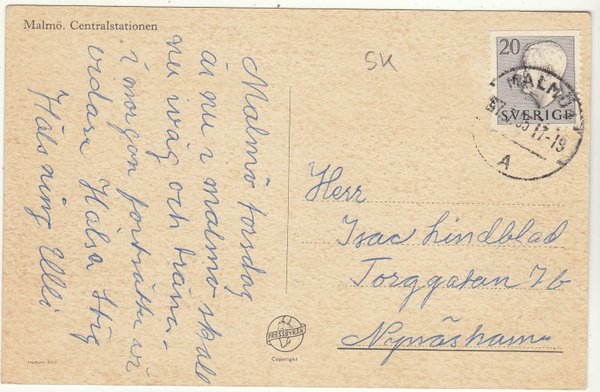 Malmö. Centralstationen
Malmö torsdag
är nu i malmö skall
nu iväg och träna.
i morgon fortsätter vi
vidare Hälsa Stig
Hälsning Elli
SK
20
MALMÖ
SVERIGE
17-19
A
Herr
Isac Lindblad
Torggatan 7b
Nynäshamn
PRESSBYRÅN
Copyright